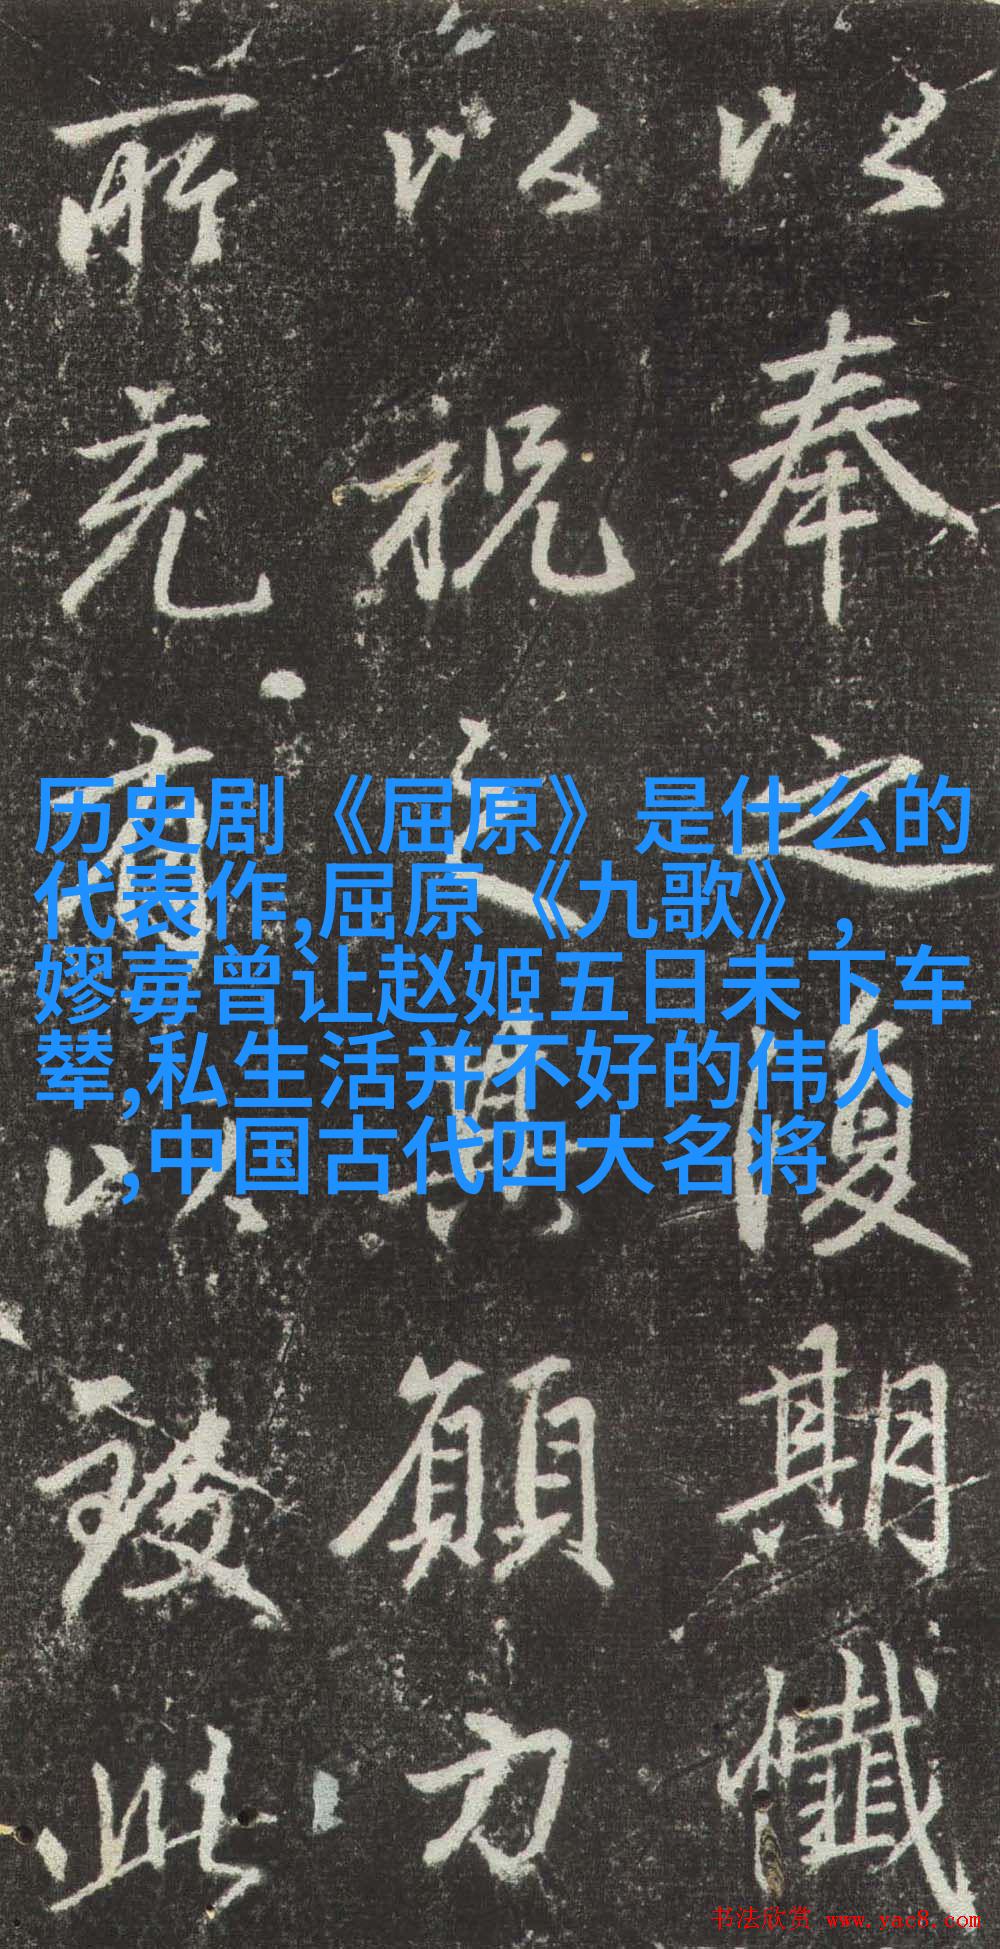 以奉之後期懺
以祝文其願力
所充有以致此
历史剧《屈原》是什么的
代表作,屈原《九歌》,
嫪毐曾让赵姬五日未下车
辇,私生活并不好的伟人
,中国古代四大名将
书法欣赏 www.yac8.com